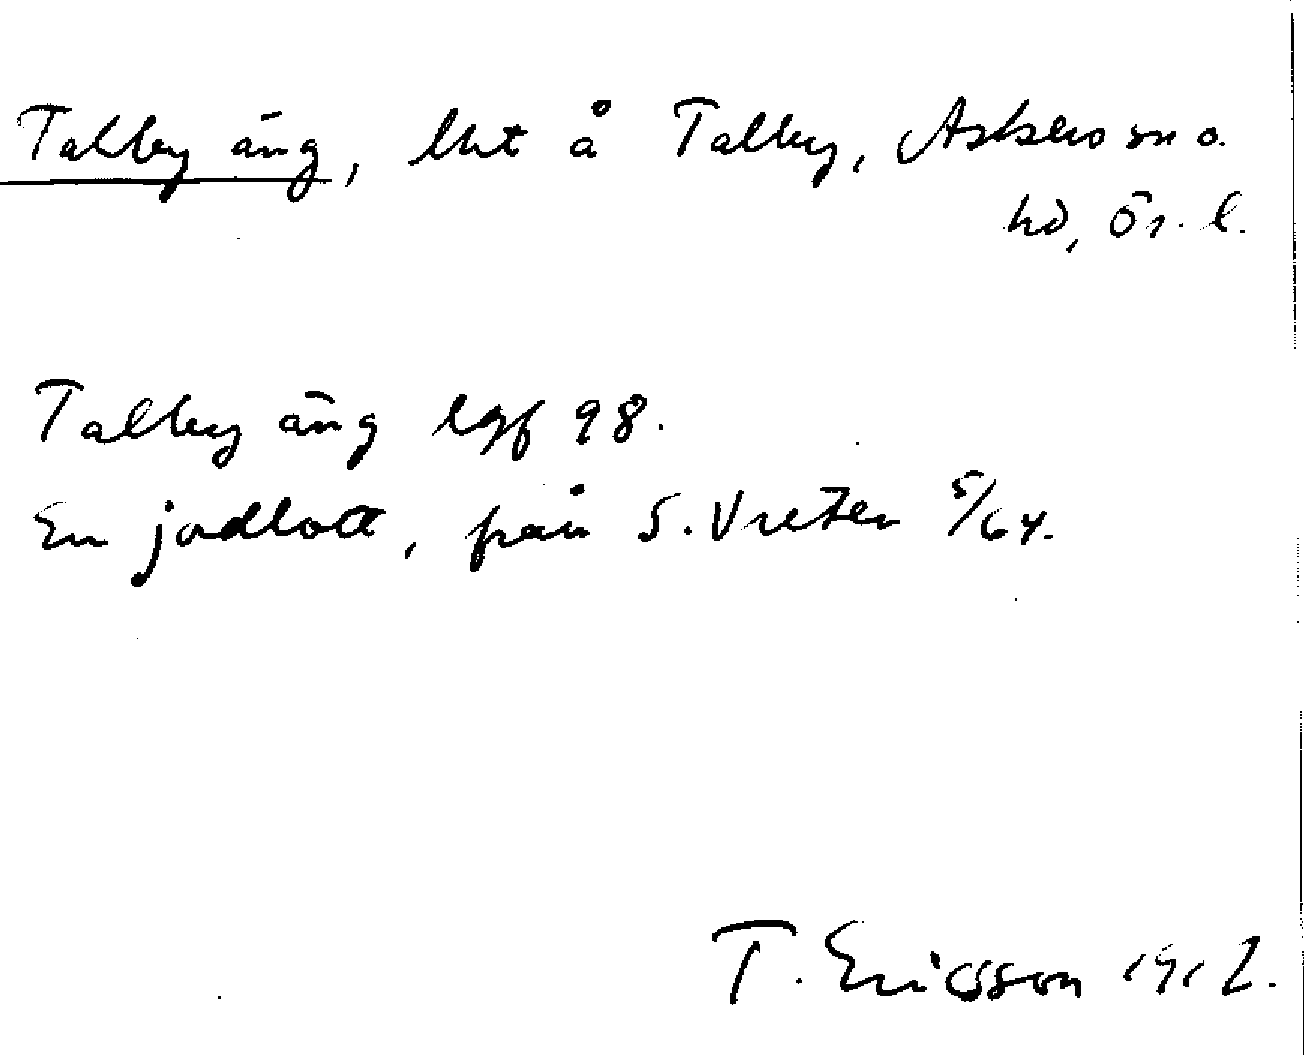 Talby äng, lht å Talby, Askers sn o.
hd, Ör. l.
Talby äng lgf 98.
En jordlott, från S. Vreten 5/64.
T. Ericsson 1912.